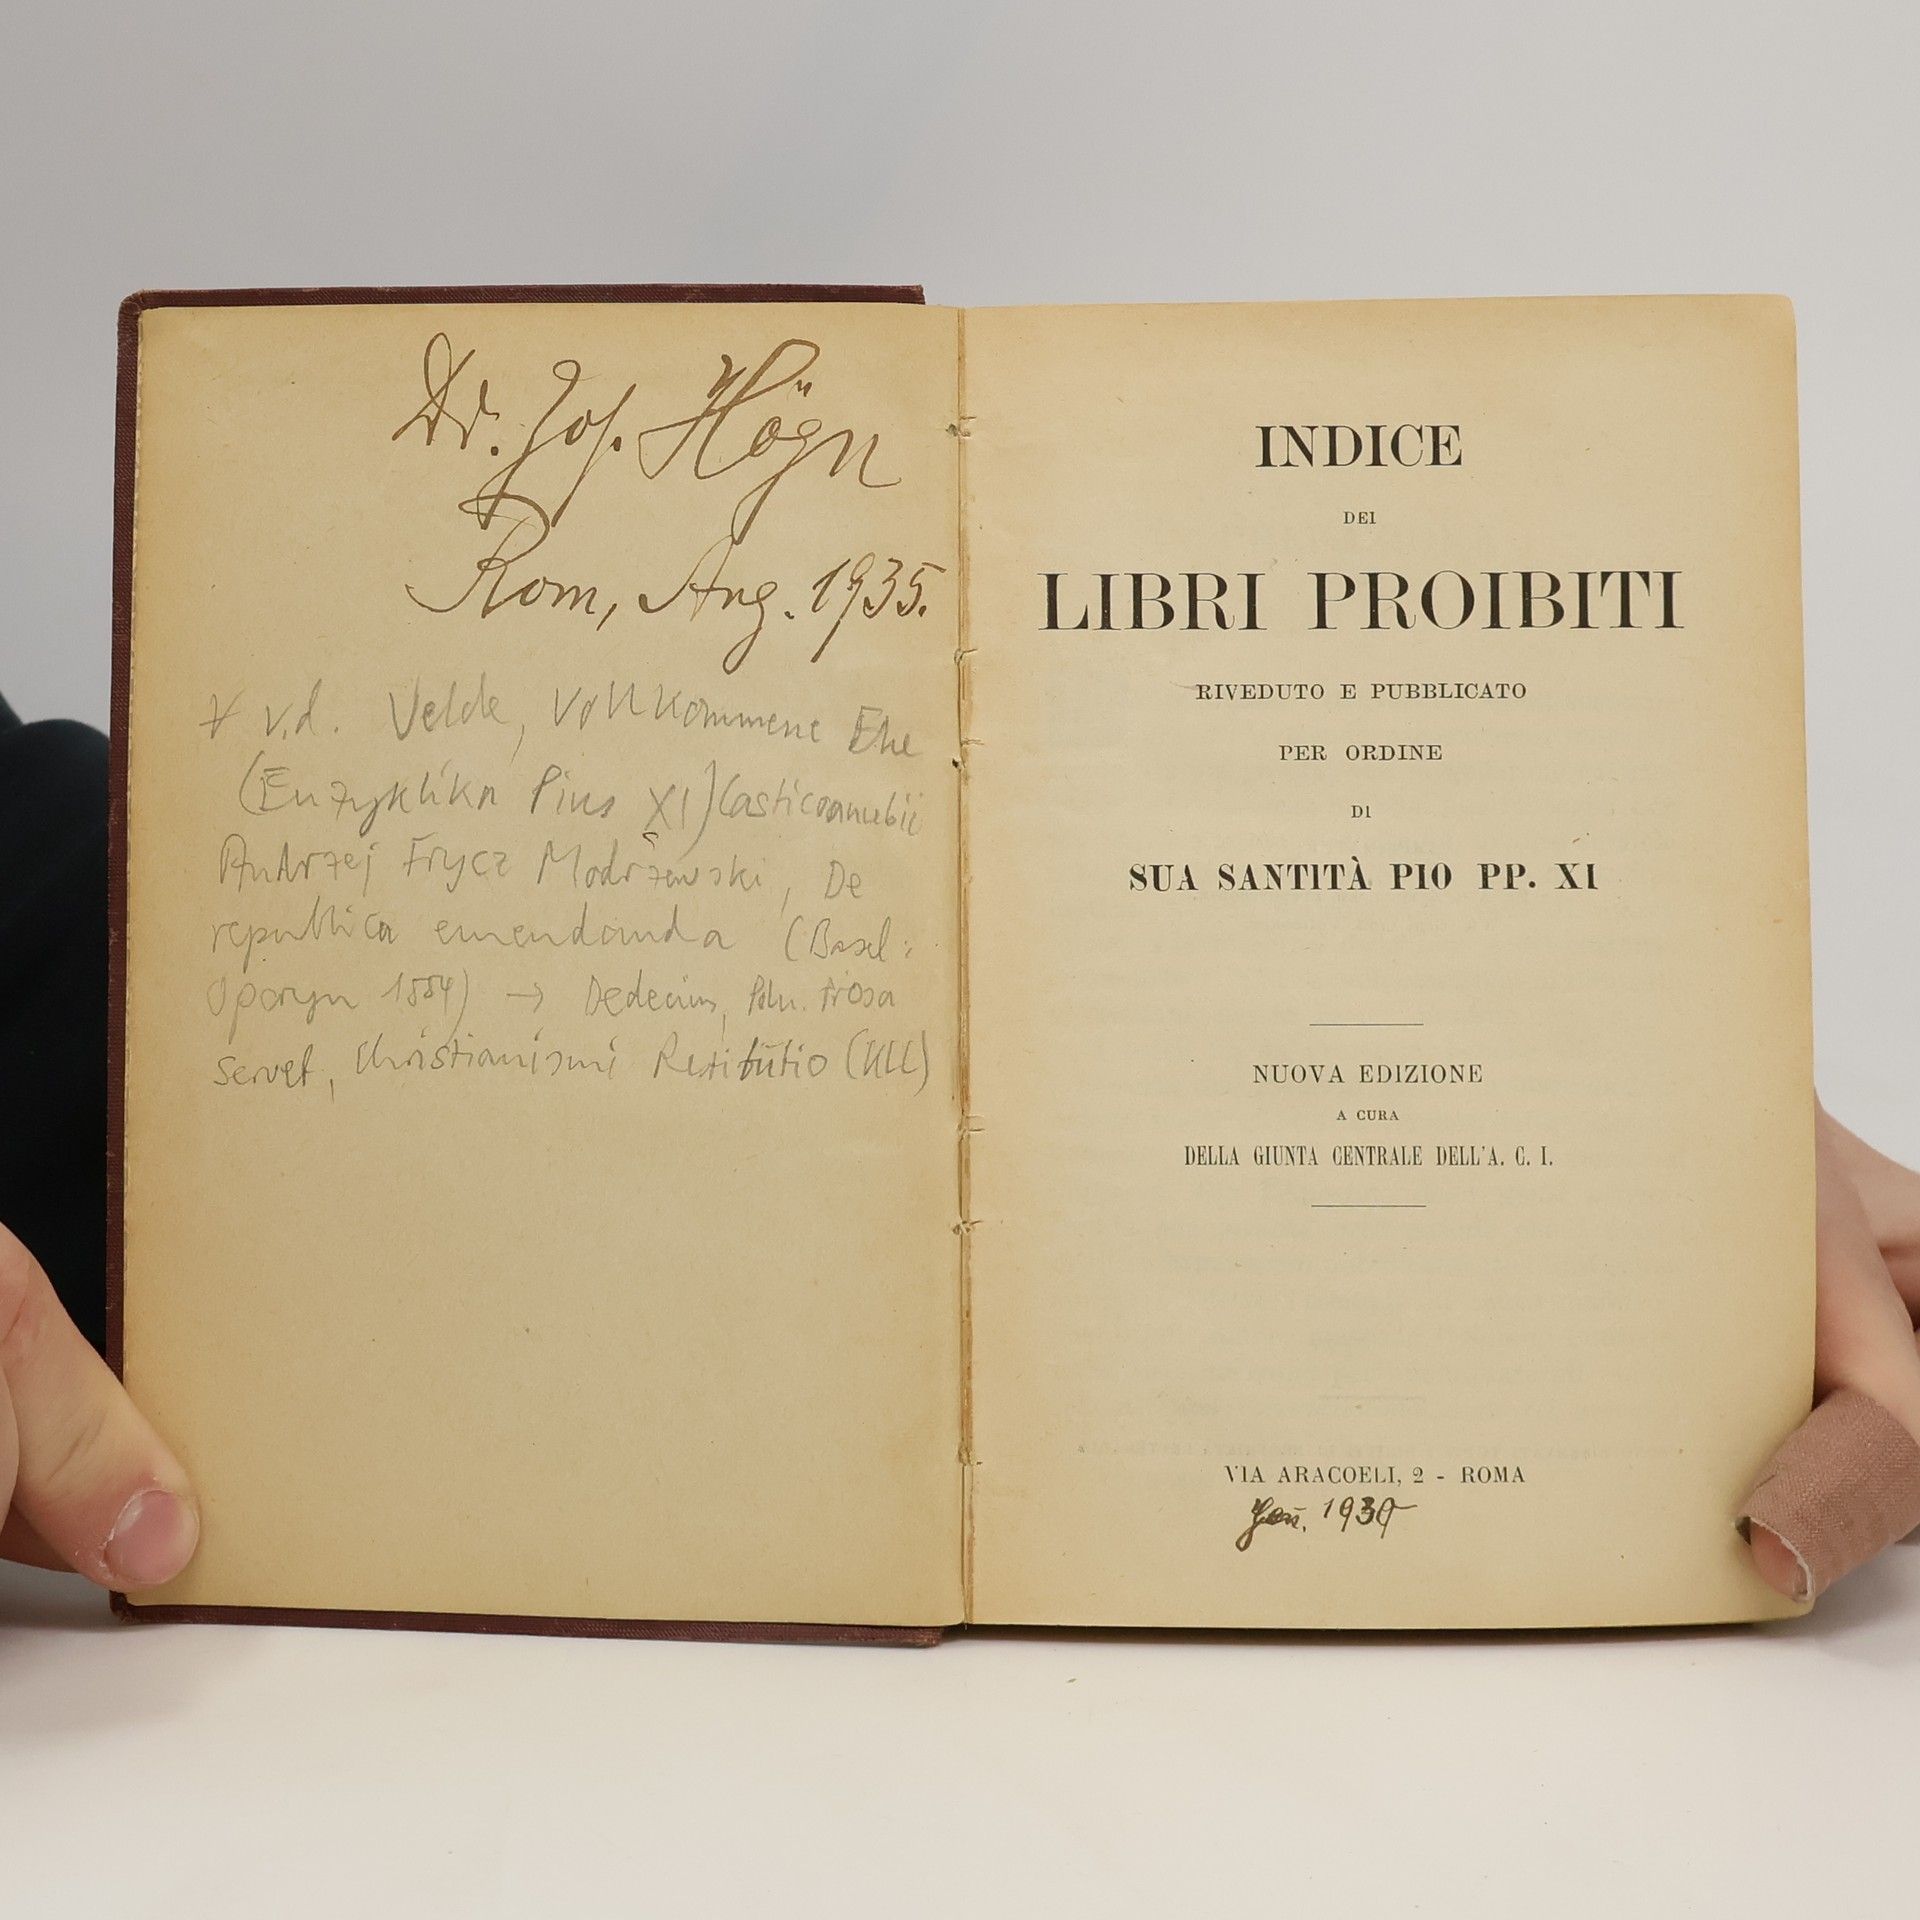 Dr. Jos. Högn
Rom, Aug. 1935.
v.d. Velde, Vollkommene Ehe
(Enzyklika Pius XI) Casti connubii
Andrzej Frycz Modrzewski, De
republica emendanda (Basel:
Oporyn 1554) → Dedecius, Poln. Prosa
Servet, Christianismi Restitutio (KLL)
INDICE
DEI
LIBRI PROIBITI
RIVEDUTO E PUBBLICATO
PER ORDINE
DI
SUA SANTITÀ PIO PP. XI
NUOVA EDIZIONE
A CURA
DELLA GIUNTA CENTRALE DELL'A. C. I.
VIA ARACOELI, 2 - ROMA
1930